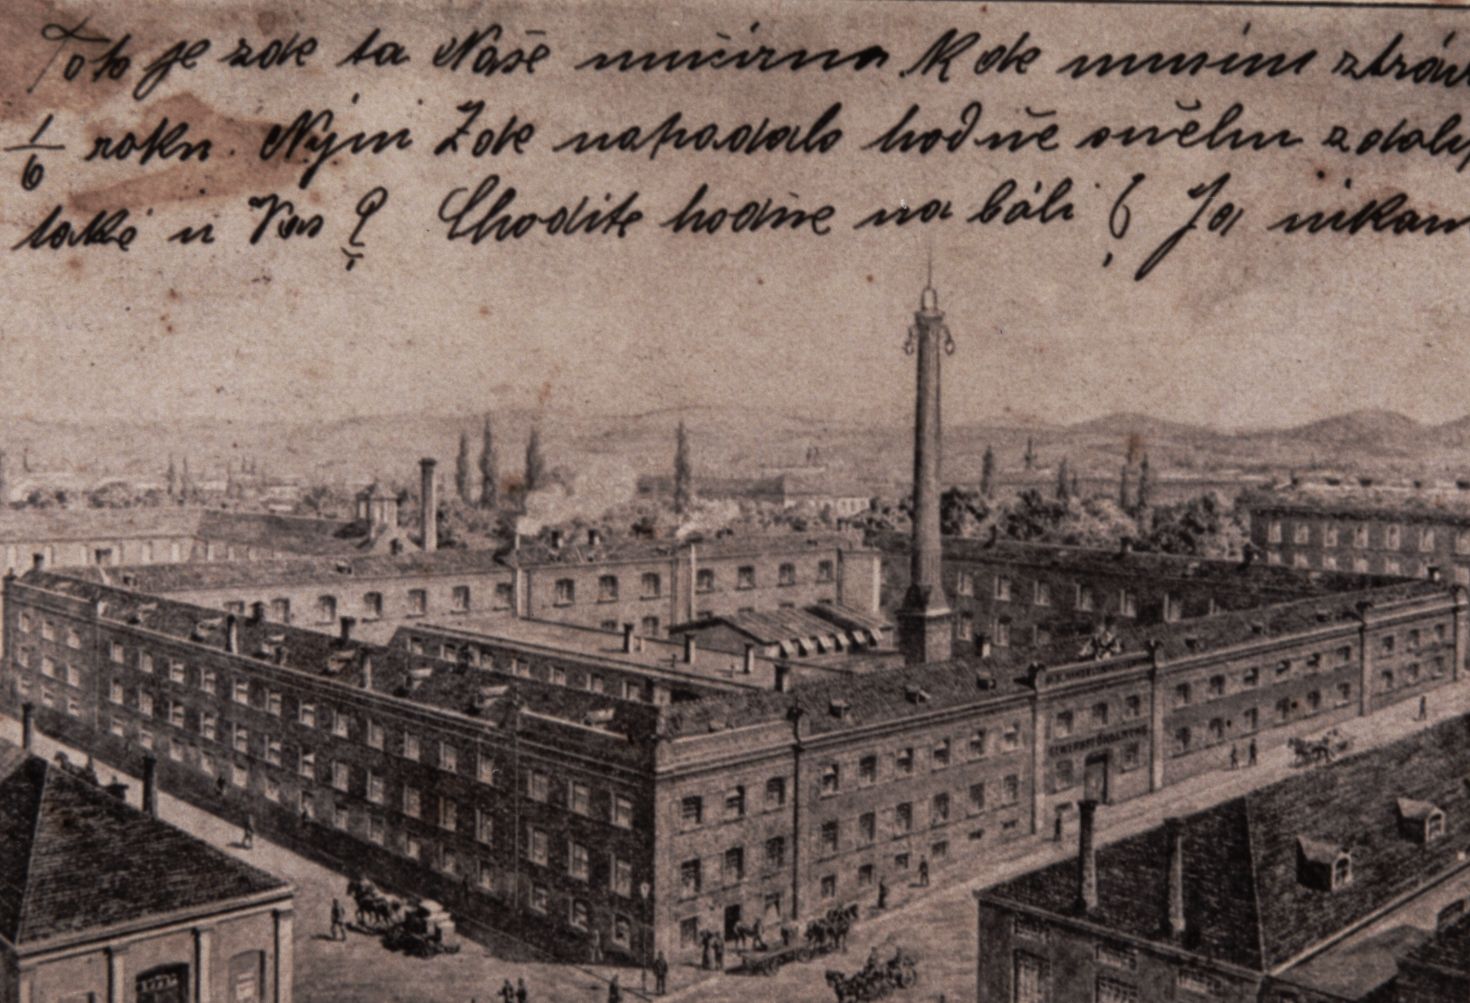 Toto je zde ta Naše mučírna Kde musím ztráv
1/6 roku. Nyní Zde napadalo hodně sněhu zdali
také u Vás? Chodíte hodně na báli? Ja nikam